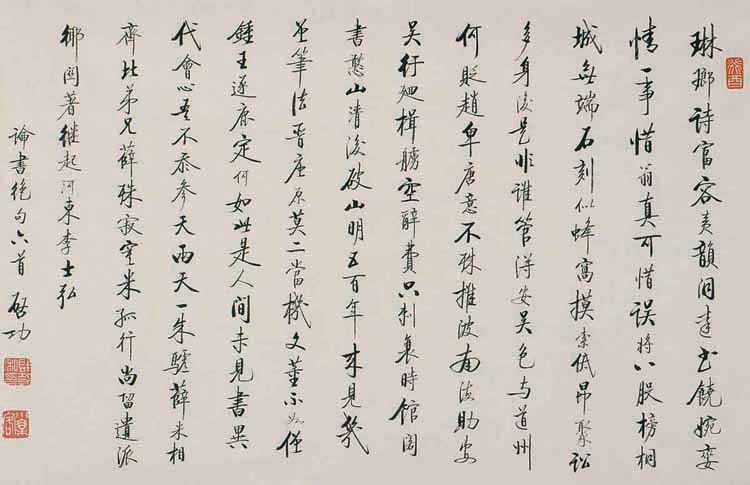 琳瑯詩富容夷韻洞達書饒婉孌
情一事惜翁真可惜誤將八股榜桐
城無端石刻似蜂窩摸索低昂聚訟
多身後是非誰管得安吳包與道州
何貶趙卑唐意不殊推波南海助安
吳紆廻楫艣空辭費只刺衰時館閣
書憨山清後破山明五百年來見幾
曾筆法晉唐原莫二當機文董不如僧
鍾王逐鹿定何如此是人間未見書異
代會心吾不忝參天兩天一朱驢薛米相
齊比弟兄薛殊寂寞米孤行尚留遺派
鄉関著繼起河東李士弘
論書絕句六首 啟功